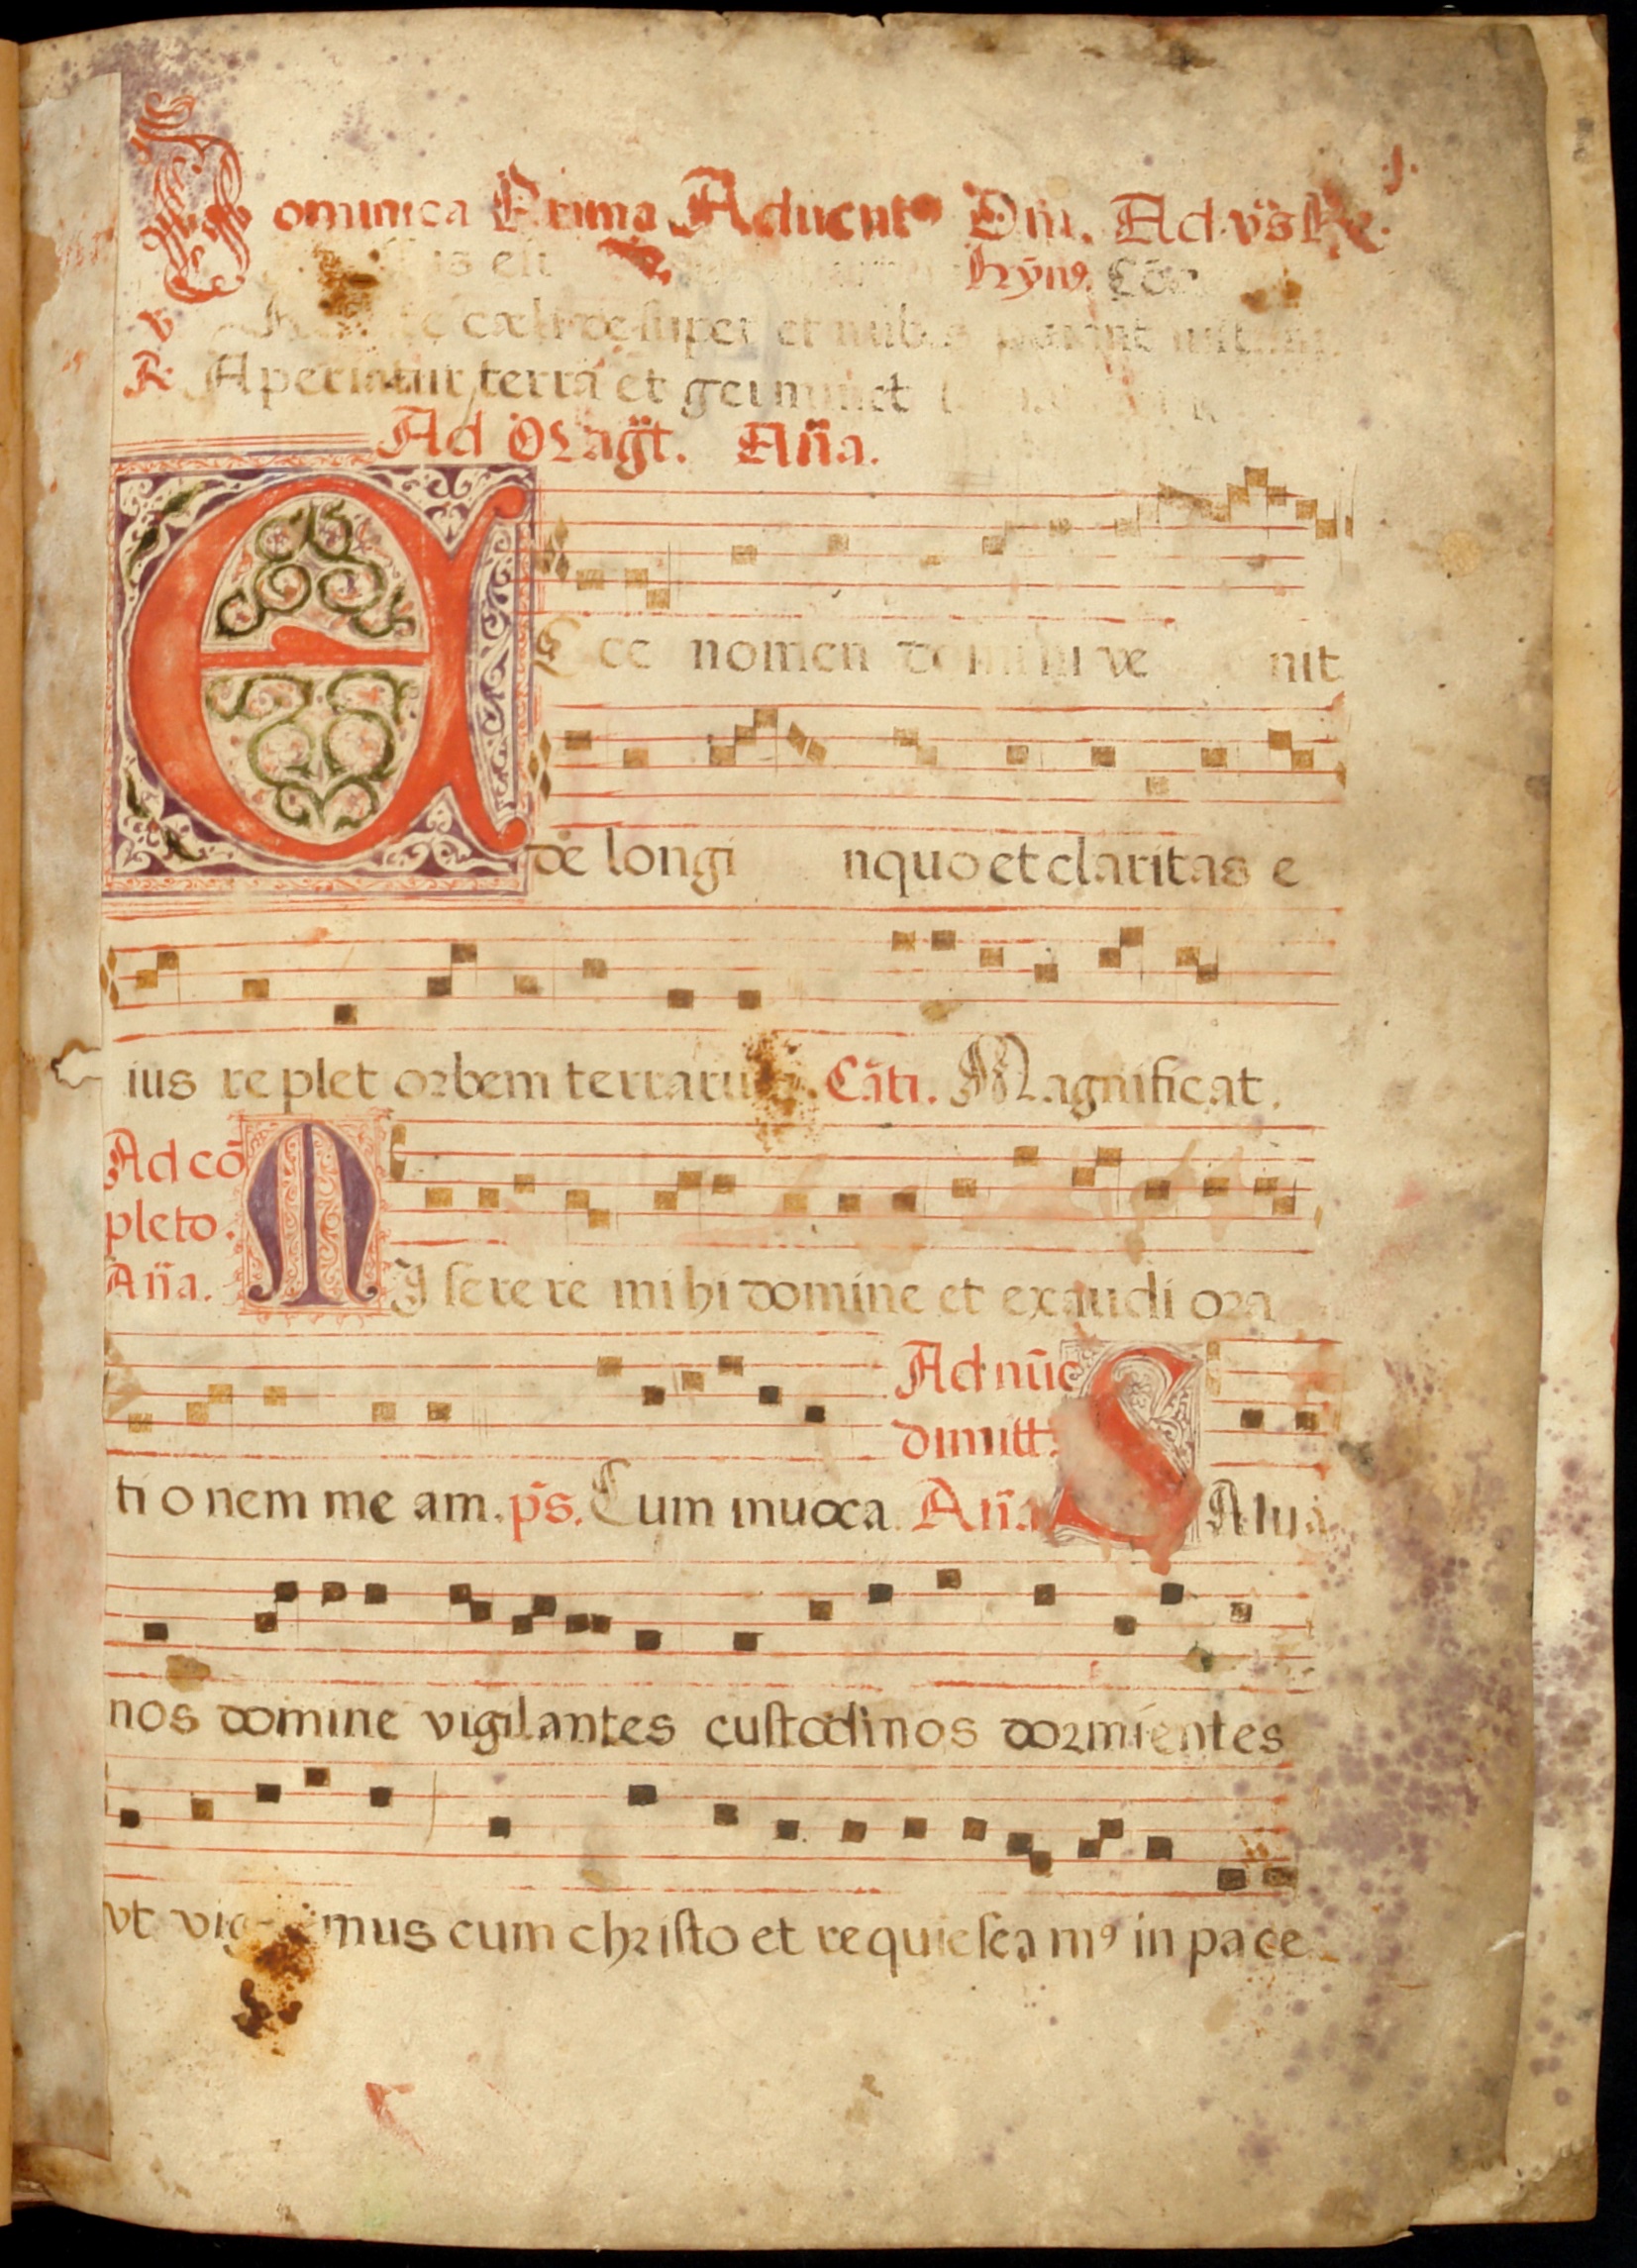 .j.
Dominica Prima Aduent9 Dñi. Ad vs̃ Re.
Hỹn9.
V te cæli desuper et nubes pluant iustum
R. Aperiatur terra et germinet
Ad Mag̃t. Aña.
Ecce nomen domini ve nit
de longi nquo et claritas e
ius replet orbem terrarum. Cãti. Magnificat.
Ad cõ
pleto.
Aña.
MIserere mihi domine et exaudi ora
Ad nũc
dimitt.
tionem meam. p̃s. Cum inuoca. Aña SAlua
nos domine vigilantes custodi nos dormientes
vt vig mus cum christo et requiescam9 in pace